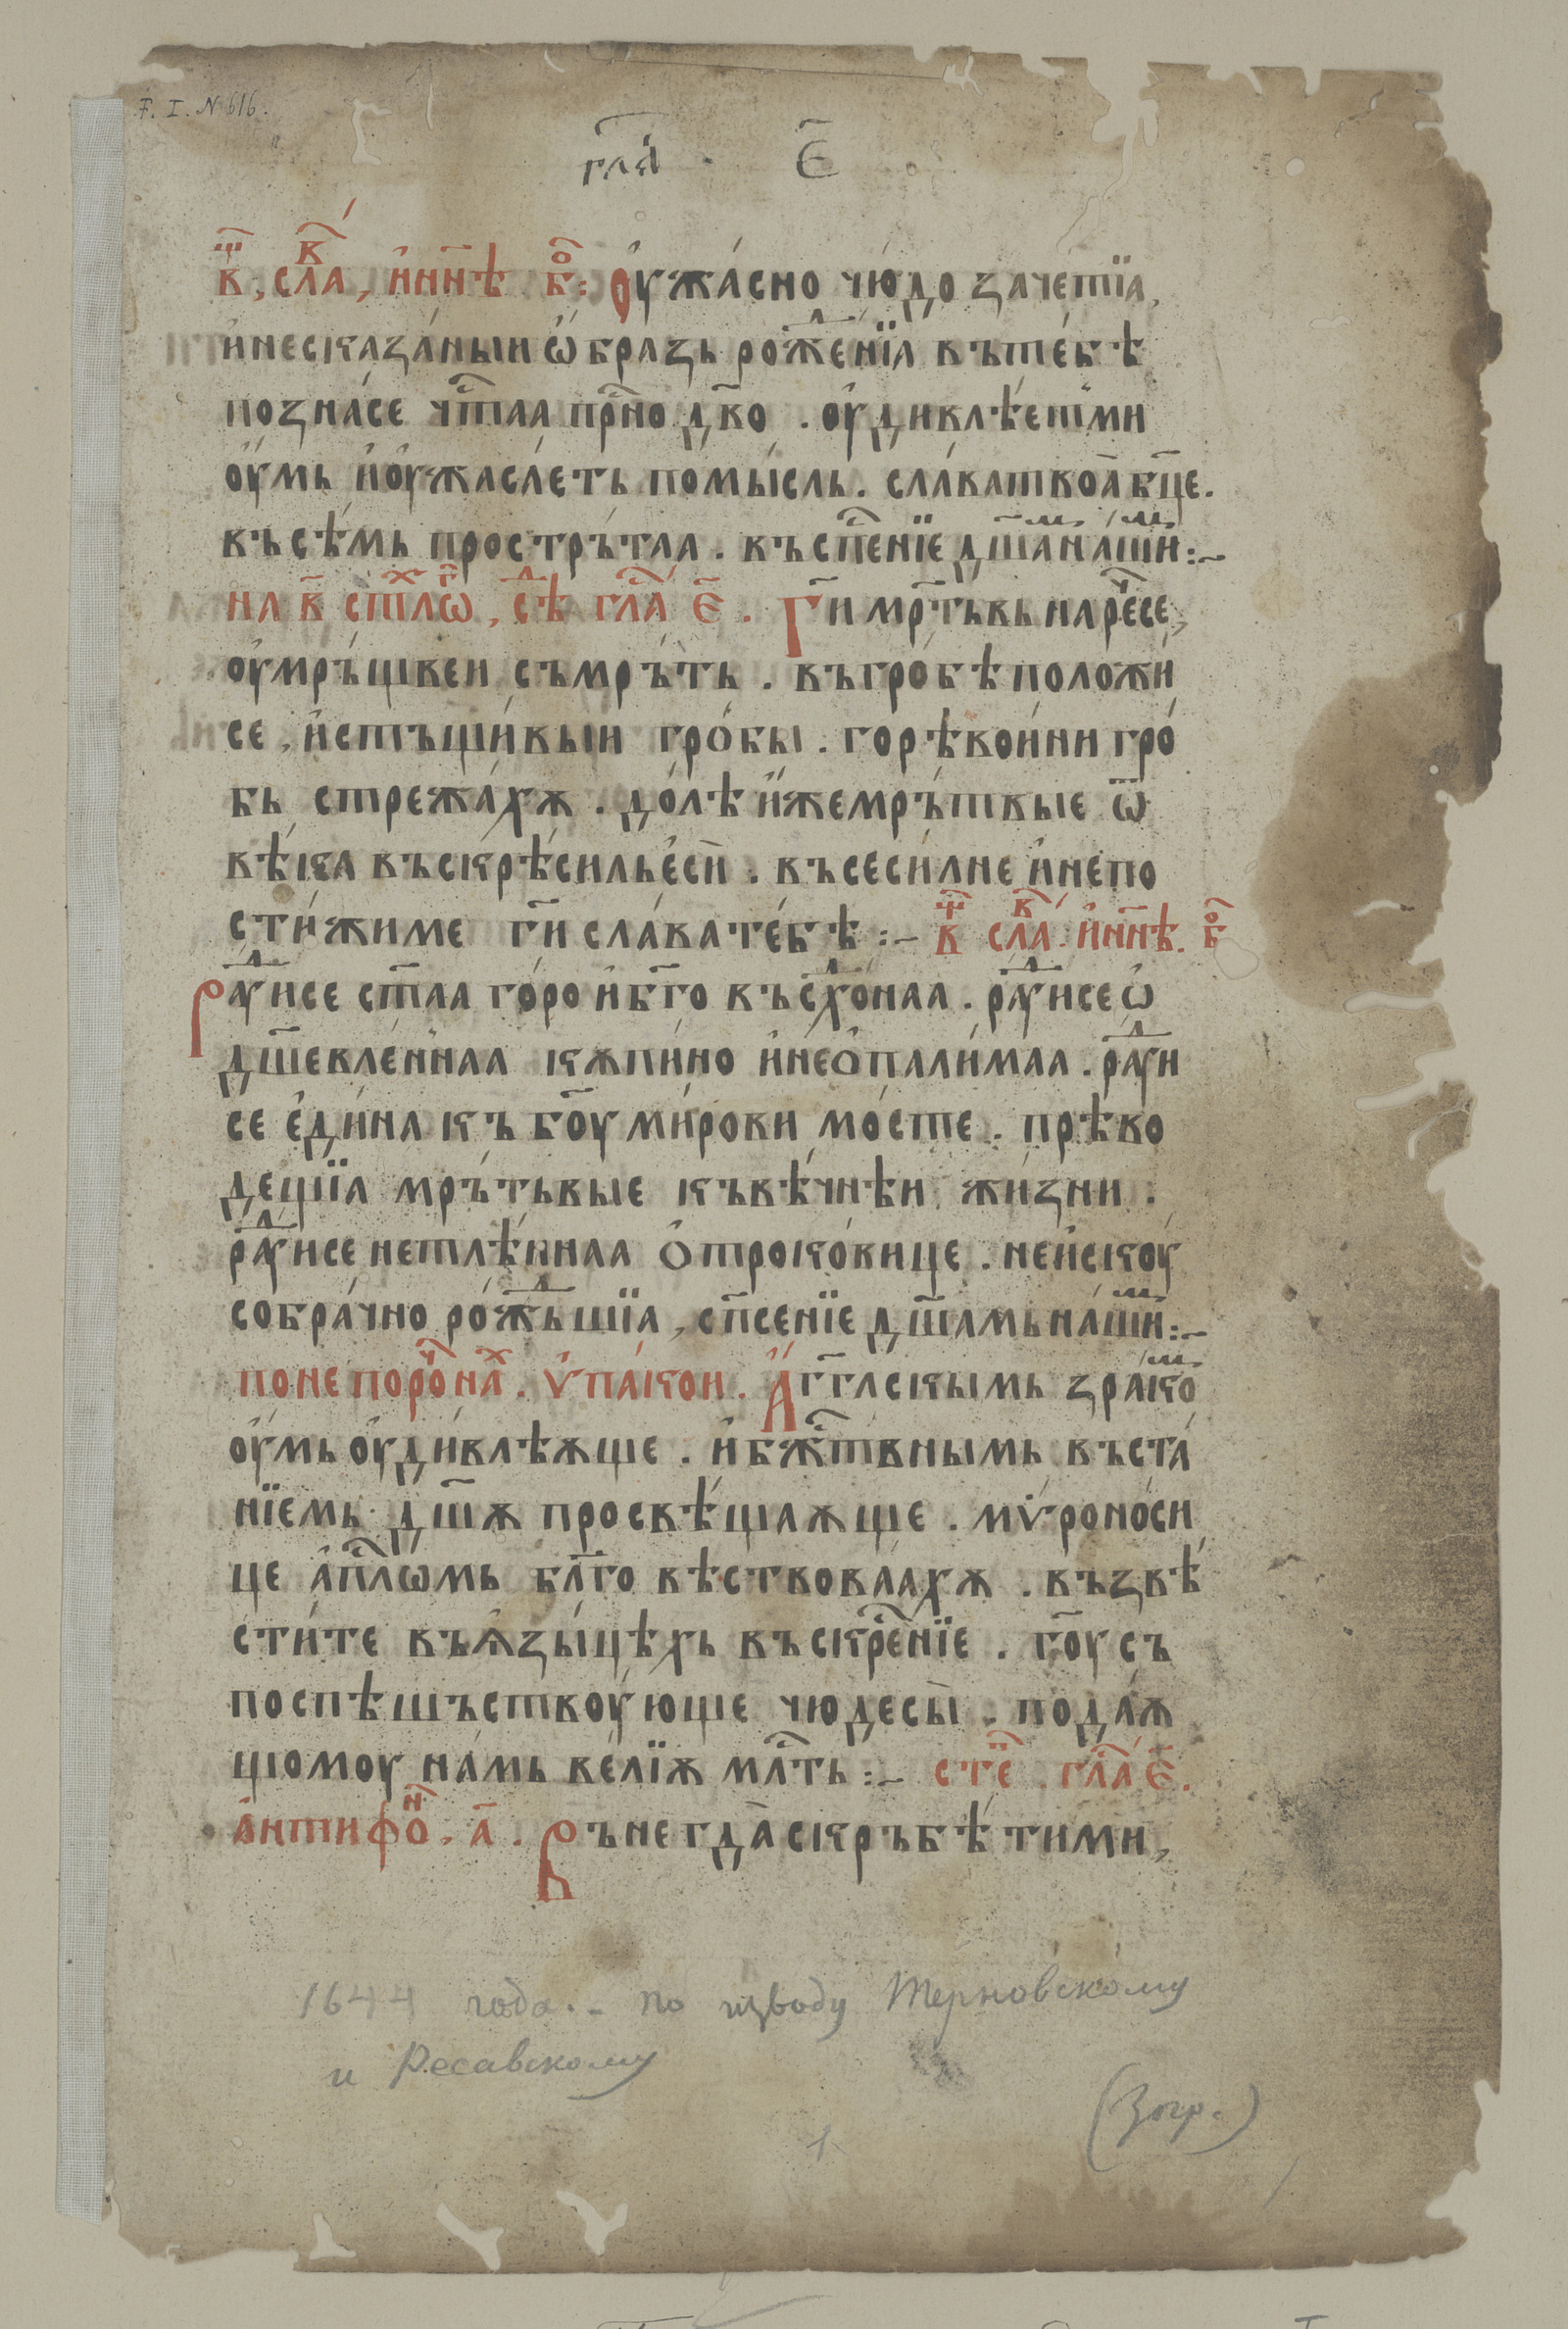 F. I. N 616.
гла҃ · є҃
в҃, сла҃в, и҆нн҃ѣ бо҃: оу҆жа́сно чю́до зачетїа,
и҆несказа́ннын ѡ҆бразь рож҃ені́а въте́бѣ
позна́се чт҃аа прн҃о дв҃о . оу҆дивлꙗ́етми
оу҆мь и҆оу҆жаса́еть помы́сль. сла́ватвоа̀ бц҃е.
въсѣ́мь простръ́таа . въсп҃енїе дш҃ана́ши:~
на в҃ ст҃хлѡ, сѣ҃д гла҃ є҃ . Ги҃ мр҃тъвь нарче́се,
оу҆мръ́щвеи съмръ́ть . въгро́бѣ положи́
се , и҆стъщи́выи гро́бы . го́рѣвои́ни гро́
бь стрежа́хѫ . до́лѣ и҆́жемръ́твые ѿ
вѣ́ка въскрѣ́сильесѝ . въсеси́лне и҆непо
сти́жиме ги҃ сла́ватебѣ :~ в҃ сла҃в и҆нн҃ѣ. бо҃
Ра́дуисе ст҃аа го́ро и҆бг҃о въсхо́днаа . ра́дуисеѡ҆
дш҃евле́ннаа кѫпи́но и҆нео҆пали́маа . ра́дуи
се є҆ди́на къ бо҃у ми́рови мо́сте . прѣво
дещїа мръ́тьвые къвѣ́чнѣи жи́зни .
ра́дуисе нетлѣ́ннаа о҆троко́вице . неи҆скоу́
собра́чно рожд҃ьшїа , сп҃сенїе дш҃амь на́ши:~
понепоро́чнах . ѵ҆пакои . А҆гг҃лскымь зра́ко
оу҆мь оу҆ди́влѣѫще . и҆ бжт҃внымь въста́
нїемь дш҃ѫ просвѣ́щаѫще . мѵ҆роноси
це а҆пл҃ѡмь бл҃го вѣствоваахѫ . възвѣ
сти́те въѧ҆зы́цѣхь въскр҃енїе . го҃у съ
поспѣшъствоу́юще чюдесы̀ . пода́ѫ
щомоу на́мь ве́лїѫ мл҃ть :~ сте҃п . гла҃ є҃.
а҆нтифо́н . а҃ . Въ негда̀скръбѣ́тими,
1644 года. – по изводу Терновскому
и Ресавскому
(Зогр.)
1